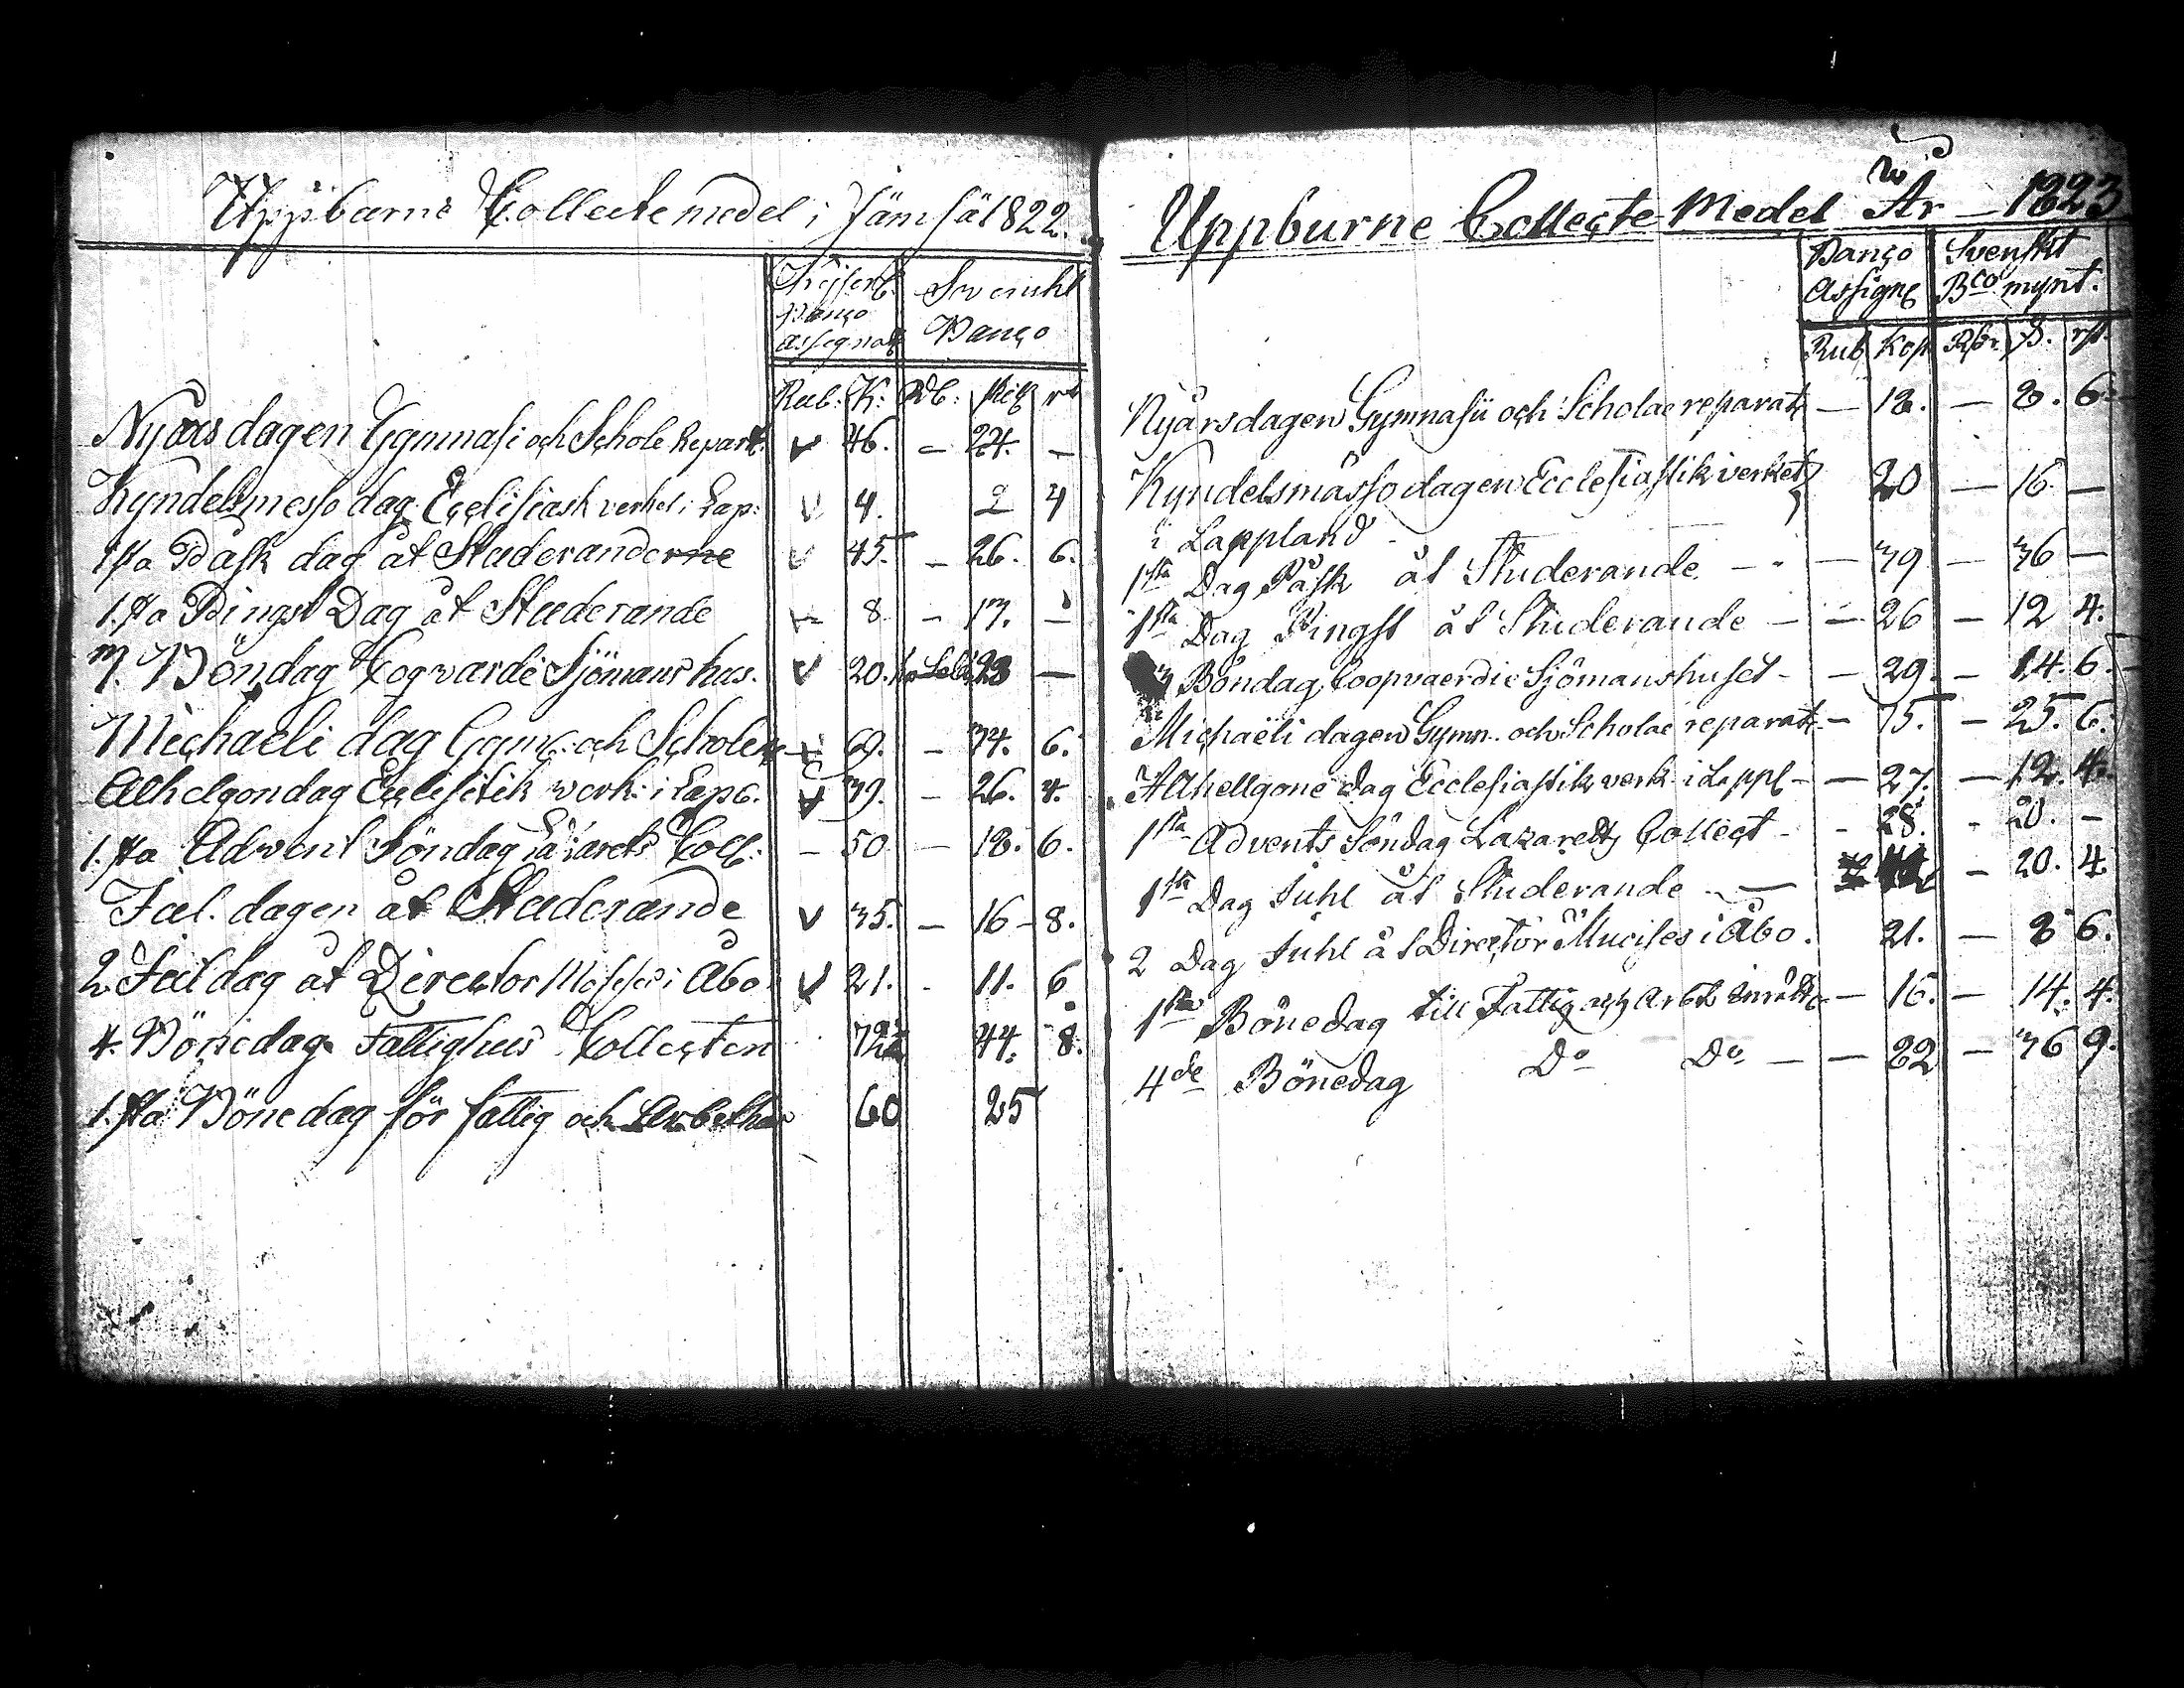 Uppbarne Collecte medel i Jämsä 1822.
Svenskt
Banço Banço
Assignat
Rub. K. Rd. skil rs
Nyårsdagen Gymnasi och Schole Repart. v 46. – 24. –
Kyndelsmesso dag Ecclisiask verket i Lap: v 4. 2 4
1sta Påsk dag åt Studeranderne v 45. – 26. 6.
1.sta Pingst Dag åt Studerande 8 – 17. –
3. Böndag Cogvardi Sjömans hus. v 20. 28 –
Michaeli dag Gymn. och Scholen 69. – 34. 6.
Alhelgondag Eclisistik verk: i Lap. 39. – 26. 4.
1.sta Advent Söndag Coll: – 50 – 18. 6.
Jul. dagen åt Studerande v 35. – 16 – 8.
2 Juldag åt Director i Åbo v 21. . 11. 6
4. Bönedag Fattighus Collecten 72 44. 8.
1.sta Bönedag för fattig och Arbethus 60 25
Uppburne Collecte Medel År – 1823
Banço Svenskt
Assign Bco mynt.
Rub Kop Rdr. ß. rst.
Nyårsdagen Gymnasii och Scholae reparat – 18. – 8. 6.
Kyndelsmässodagen Ecclesiastikverket 20 – 16 –
i Lappland
1sta Dag Påsk åt Studerande – 39 – 36 –
1sta Dag Pingst åt Studerande – 26 – 12 4.
Böndag Coopvaerdie Sjömanshuset – 29. – 14. 6.
Michaëli dagen Gymn. och Scholae reparat – 75. – 25. 6.
Alhellgone dag Ecclesiastik verk i Lappl – 27. – 12. 4.
1sta Advents Söndag Lazaretts Collect – 28. – 20. –
1sta Dag Juhl åt Studerande – 20. 4.
2 Dag Juhl åt Director i Åbo. 21. – 8 6.
1sta Bönedag till Fattig och Arbets – 16. – 14. 4.
4de Bönedag Do Do – 82 – 36 9.